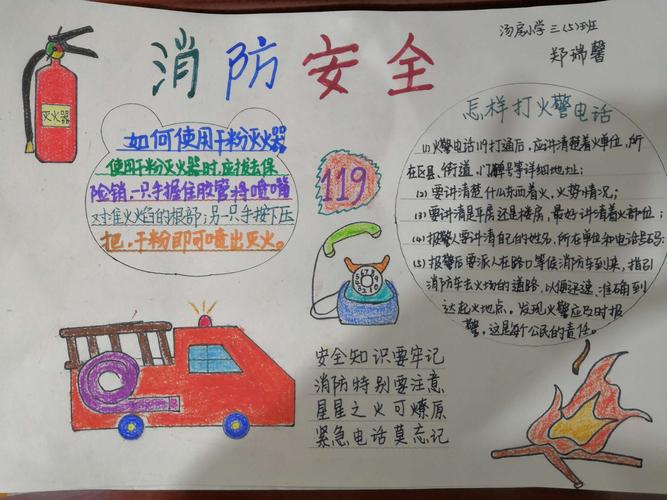 汤房小学三(5)班
郑瑞馨
消防安全
灭火器
如何使用干粉灭火器
使用干粉灭火器时,应拔去保
险销,一只手握住胶管将喷嘴
对准火焰的根部;另一只手按下压
把,干粉即可喷出灭火。
119
怎样打火警电话
(1)火警电话119打通后,应讲清楚着火单位,所
在区县、街道、门牌号等详细地址;
(2)要讲清楚什么东西着火,火势情况;
(3)要讲清是平房还是楼房,最好讲清着火部位;
(4)报警人要讲清自己的姓名,所在单位和电话号码;
(5)报警后要派人在路口等候消防车到来,指引
消防车去火场的道路,以便迅速、准确到
达起火地点。发现火警应及时报
警,这是每个公民的责任。
安全知识要牢记
消防特别要注意
星星之火可燎原
紧急电话莫忘记